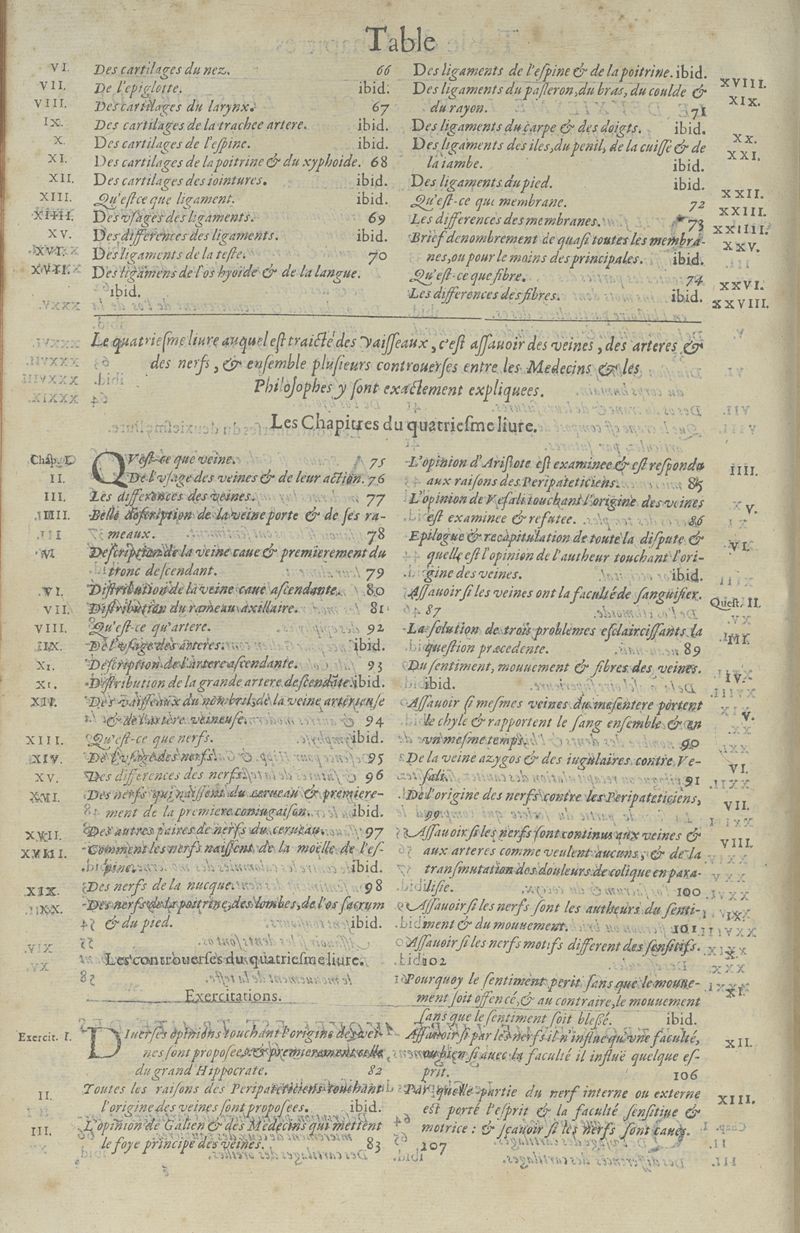 Table
VI. Des cartilages du nez. 66
VII. De l'epiglotte. ibid.
VIII. Des cartilages du larynx. 67
IX. Des cartilages de la trachee artere. ibid.
X. Des cartilages de l'espine. ibid.
XI. Des cartilages de la poitrine & du xyphoide. 68
XII. Des cartilages des iointures. ibid.
XIII. Qu'est ce que ligament. ibid.
XIIII. Des vsages des ligaments. 69
XV. Des differences des ligaments. ibid.
XVI. Des ligaments de la teste. 70
XVII. Des ligamens de l'os hyoide & de la langue.
ibid.
Des ligaments de l'espine & de la poitrine. ibid. XVIII.
Des ligaments du paleron, du bras, du coulde & XIX.
du rayon. 71
Des ligaments du carpe & des doigts. ibid. XX.
Des ligaments des iles, du penil, de la cuisse & de XXI.
la iambe. ibid.
Des ligaments du pied. ibid. XXII.
Qu'est-ce qui membrane. 72 XXIII.
Les differences des membranes. 73 XXIIII.
Brief denombrement de quasi toutes les membra- XXV.
nes, ou pour le moins des principales. ibid.
Qu'est-ce que fibre. 74 XXVI.
Les differences des fibres. ibid. XXVIII.
Le quatriesme liure auquel est traicté des Vaisseaux, c'est assauoir des veines, des arteres &
des nerfs, & ensemble plusieurs controuerses entre les Medecins & les
Philosophes y sont exactement expliquees.
Les Chapitres du quatriesme liure.
Chap. I. QV'est-ce que veine. 75
II. De l'vsage des veines & de leur action. 76
III. Les differences des veines. 77
IIII. Belle description de la veine porte & de ses ra-
meaux. 78
V. Description de la veine caue & premierement du
tronc descendant. 79
VI. Distribution de la veine caue ascendante. 80
VII. Distribution du rameau axillaire. 81
VIII. Qu'est-ce qu'artere. 92
IX. De l'vsage des arteres. ibid.
XI. Description de l'artere ascendante. 93
XI. Distribution de la grande artere descendãte. ibid.
XII. Des vaisseaux du nombril, de la veine arterieuse
& de l'artere veineuse. 94
XIII. Qu'est-ce que nerfs. ibid.
XIV. De l'vsage des nerfs. 95
XV. Des differences des nerfs. 96
XVI. Des nerfs qui naissent du cerueau & premiere-
ment de la premiere coniugaison. ibid.
XVII. Des autres paires de nerfs du cerueau. 97
XVIII. Comment les nerfs naissent de la moëlle de l'es-
pine. ibid.
XIX. Des nerfs de la nucque. 98
XX. Des nerfs de la poitrine, des lombes, de l'os sacrum
& du pied. ibid.
Les controuerses du quatriesme liure.
Exercitations.
Exercit. I. DIuerses opinions touchant l'origine des vei-
nes sont proposees, & premierement celle
du grand Hippocrate. 82
II. Toutes les raisons des Peripateticiens touchant
l'origine des veines sont proposees. ibid.
III. L'opinion de Galien & des Medecins qui mettent
le foye principe des veines. 83
L'opinion d'Aristote est examinee & est respondu IIII.
aux raisons des Peripateticiens. 85
L'opinion de Vesali touchant l'origine des veines V.
est examinee & refutee. 86
Epilogue & recapitulation de toute la dispute & VI.
quelle est l'opinion de l'autheur touchant l'ori-
gine des veines. ibid.
Assauoir si les veines ont la faculté de sanguifier. Quest. II.
87
La solution de trois problemes esclaircissants la III.
question præcedente. 89
Du sentiment, mouuement & fibres des veines. IV.
ibid.
Assauoir si mesmes veines du mesentere portent V.
le chyle & rapportent le sang ensemble & en
vn mesme temps. 90
De la veine azygos & des iugulaires contre Ve- VI.
sali. 91
De l'origine des nerfs contre les Peripateticiens, VII.
99
Assauoir si les nerfs sont continus aux veines & VIII.
aux arteres comme veulent aucuns, & de la
transmutation des douleurs de colique en para-
lisie. 100
Assauoir si les nerfs sont les autheurs du senti- IX.
ment & du mouuement. 101
Assauoir si les nerfs motifs different des sensitifs. X.
102
Pourquoy le sentiment perit sans que le mouue- XI.
ment soit offencé, & au contraire, le mouuement
sans que le sentiment soit blessé. ibid.
Assauoir si par les nerfs il n'influe qu'vne faculté, XII.
ou bien si auec la faculté il influë quelque es-
prit. 106
Par quelle partie du nerf interne ou externe XIII.
est porté l'esprit & la faculté sensitiue &
motrice : & sçauoir si les nerfs sont caues.
107